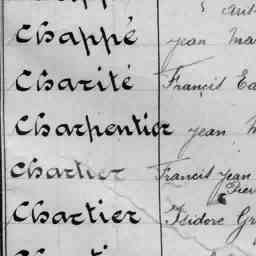 Chappé Jean Ma
Charité Francis Ea
Charpentier Jean M
Chartier Francis Jean
Chartier Isidore Gr